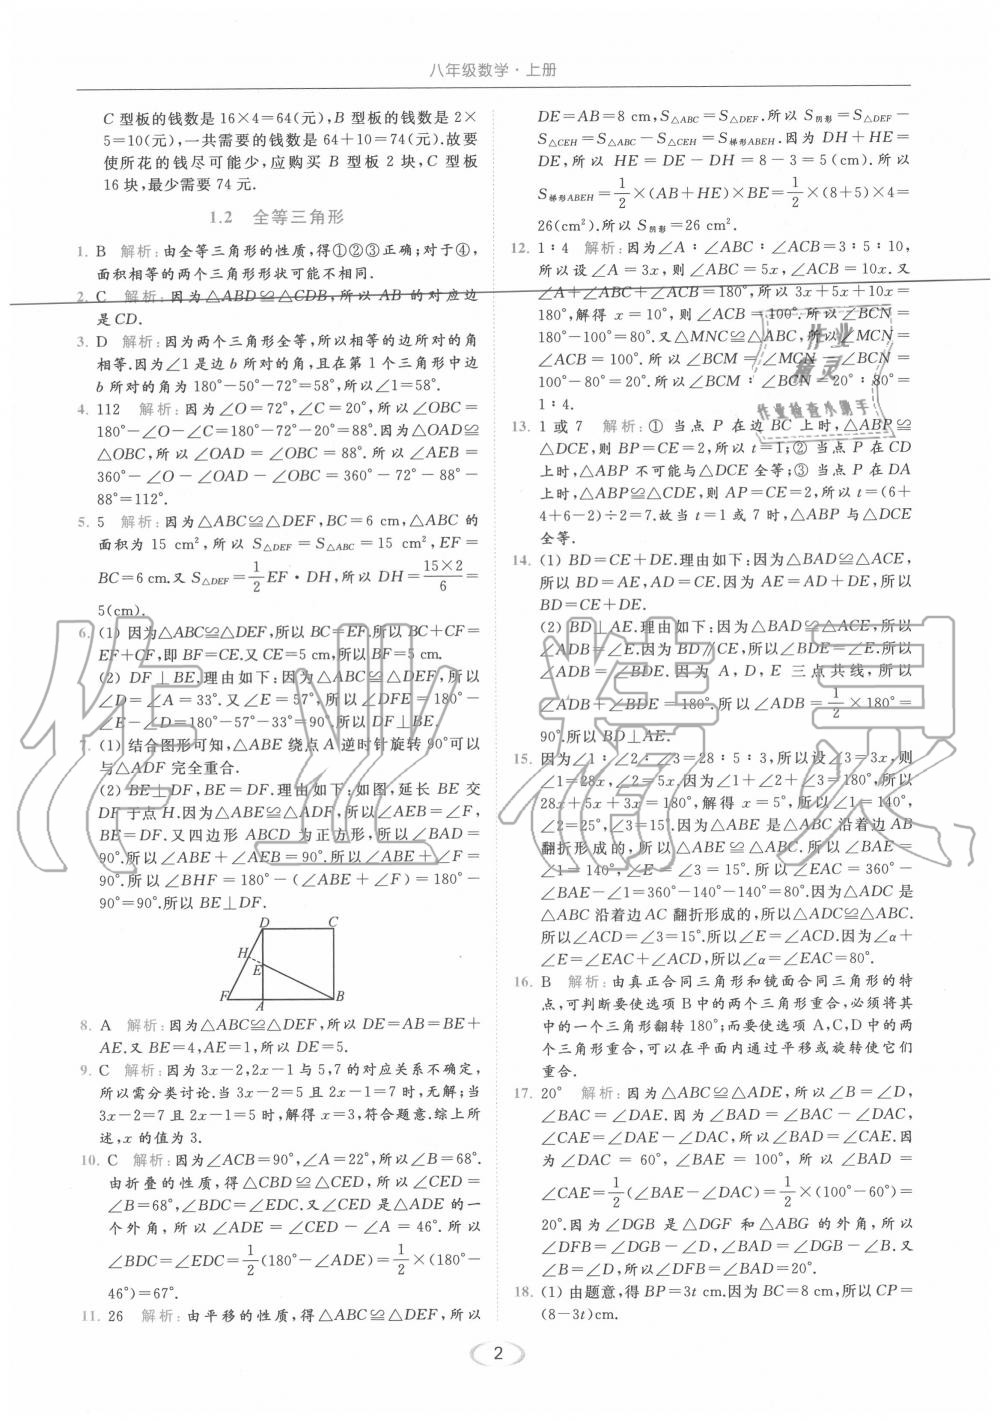 八年级数学·上册
C 型板的钱数是 16×4=64(元),B 型板的钱数是 2×
5=10(元),一共需要的钱数是 64+10=74(元).故要
使所花的钱尽可能少,应购买 B 型板 2 块,C 型板
16 块,最少需要 74 元.
1.2 全等三角形
1. B 解析:由全等三角形的性质,得①②③正确;对于④,
面积相等的两个三角形形状可能不相同.
2. C 解析:因为△ABD≌△CDB,所以 AB 的对应边
是CD.
3. D 解析:因为两个三角形全等,所以相等的边所对的角
相等.因为∠1 是边 b 所对的角,且在第 1 个三角形中边
b 所对的角为 180°-50°-72°=58°,所以∠1=58°.
4. 112 解析:因为∠O=72°,∠C=20°,所以∠OBC=
180°-∠O-∠C=180°-72°-20°=88°.因为△OAD≌
△OBC,所以∠OAD=∠OBC=88°.所以∠AEB=
360°-∠O-∠OAD-∠OBC=360°-72°-88°-
88°=112°.
5. 5 解析:因为△ABC≌△DEF,BC=6 cm,△ABC 的
面积为 15 cm²,所以 S△DEF=S△ABC=15 cm²,EF=
BC=6 cm.又 S△DEF=1/2 EF·DH,所以 DH=15×2/6=
5(cm).
6. (1) 因为△ABC≌△DEF,所以 BC=EF.所以 BC+CF=
EF+CF,即 BF=CE.又 CE=5 cm,所以 BF=5 cm.
(2) DF⊥BE.理由如下:因为△ABC≌△DEF,所以
∠D=∠A=33°.又∠E=57°,所以∠DFE=180°-
∠E-∠D=180°-57°-33°=90°.所以 DF⊥BE.
7. (1) 结合图形可知,△ABE 绕点 A 逆时针旋转 90°可以
与△ADF 完全重合.
(2) BE⊥DF,BE=DF.理由如下:如图,延长 BE 交
DF 于点 H.因为△ABE≌△ADF,所以∠AEB=∠F,
BE=DF.又四边形 ABCD 为正方形,所以∠BAD=
90°.所以∠ABE+∠AEB=90°.所以∠ABE+∠F=
90°.所以∠BHF=180°-(∠ABE+∠F)=180°-
90°=90°.所以 BE⊥DF.
D C
H
E
F A B
8. A 解析:因为△ABC≌△DEF,所以 DE=AB=BE+
AE.又 BE=4,AE=1,所以 DE=5.
9. C 解析:因为 3x-2,2x-1 与 5,7 的对应关系不确定,
所以需分类讨论.当 3x-2=5 且 2x-1=7 时,无解;当
3x-2=7 且 2x-1=5 时,解得 x=3,符合题意.综上所
述,x 的值为 3.
10. C 解析:因为∠ACB=90°,∠A=22°,所以∠B=68°.
由折叠的性质,得△CBD≌△CED,所以∠CED=
∠B=68°,∠BDC=∠EDC.又∠CED 是△ADE 的一
个外角,所以∠ADE=∠CED-∠A=46°.所以
∠BDC=∠EDC=1/2(180°-∠ADE)=1/2×(180°-
46°)=67°.
11. 26 解析:由平移的性质,得△ABC≌△DEF,所以
DE=AB=8 cm,S△ABC=S△DEF.所以 S阴影=S△DEF-
S△CEH=S△ABC-S△CEH=S梯形ABEH.因为 DH+HE=
DE,所以 HE=DE-DH=8-3=5(cm).所以
S梯形ABEH=1/2×(AB+HE)×BE=1/2×(8+5)×4=
26(cm²).所以 S阴影=26 cm².
12. 1∶4 解析:因为∠A∶∠ABC∶∠ACB=3∶5∶10,
所以设∠A=3x,则∠ABC=5x,∠ACB=10x.又
∠A+∠ABC+∠ACB=180°,所以 3x+5x+10x=
180°,解得 x=10°,则∠ACB=100°.所以∠BCN=
180°-100°=80°.又△MNC≌△ABC,所以∠MCN=
∠ACB=100°.所以∠BCM=∠MCN-∠BCN=
100°-80°=20°.所以∠BCM∶∠BCN=20°∶80°=
1∶4.
13. 1 或 7 解析:① 当点 P 在边 BC 上时,△ABP≌
△DCE,则 BP=CE=2,所以 t=1;② 当点 P 在 CD
上时,△ABP 不可能与△DCE 全等;③ 当点 P 在 DA
上时,△ABP≌△CDE,则 AP=CE=2,所以 t=(6+
4+6-2)÷2=7.故当 t=1 或 7 时,△ABP 与△DCE
全等.
14. (1) BD=CE+DE.理由如下:因为△BAD≌△ACE,
所以 BD=AE,AD=CE.因为 AE=AD+DE,所以
BD=CE+DE.
(2) BD⊥AE.理由如下:因为△BAD≌△ACE,所以
∠ADB=∠E.因为 BD∥CE,所以∠BDE=∠E.所以
∠ADB=∠BDE.因为 A,D,E 三点共线,所以
∠ADB+∠BDE=180°.所以∠ADB=1/2×180°=
90°.所以 BD⊥AE.
15. 因为∠1∶∠2∶∠3=28∶5∶3,所以设∠3=3x,则
∠1=28x,∠2=5x.因为∠1+∠2+∠3=180°,所以
28x+5x+3x=180°,解得 x=5°,所以∠1=140°,
∠2=25°,∠3=15°.因为△ABE 是△ABC 沿着边 AB
翻折形成的,所以△ABE≌△ABC.所以∠BAE=
∠1=140°,∠E=∠3=15°.所以∠EAC=360°-
∠BAE-∠1=360°-140°-140°=80°.因为△ADC 是
△ABC 沿着边 AC 翻折形成的,所以△ADC≌△ABC.
所以∠ACD=∠3=15°.所以∠E=∠ACD.因为∠α+
∠E=∠EAC+∠ACD,所以∠α=∠EAC=80°.
16. B 解析:由真正合同三角形和镜面合同三角形的特
点,可判断要使选项 B 中的两个三角形重合,必须将其
中的一个三角形翻转 180°;而要使选项 A,C,D 中的两
个三角形重合,可以在平面内通过平移或旋转使它们
重合.
17. 20° 解析:因为△ABC≌△ADE,所以∠B=∠D,
∠BAC=∠DAE.因为∠BAD=∠BAC-∠DAC,
∠CAE=∠DAE-∠DAC,所以∠BAD=∠CAE.因
为∠DAC=60°,∠BAE=100°,所以∠BAD=
∠CAE=1/2(∠BAE-∠DAC)=1/2×(100°-60°)=
20°.因为∠DGB 是△DGF 和△ABG 的外角,所以
∠DFB=∠DGB-∠D,∠BAD=∠DGB-∠B.又
∠B=∠D,所以∠DFB=∠BAD=20°.
18. (1) 由题意,得 BP=3t cm.因为 BC=8 cm,所以 CP=
(8-3t)cm.
2
作业精灵
作业
精灵
作业检查小助手